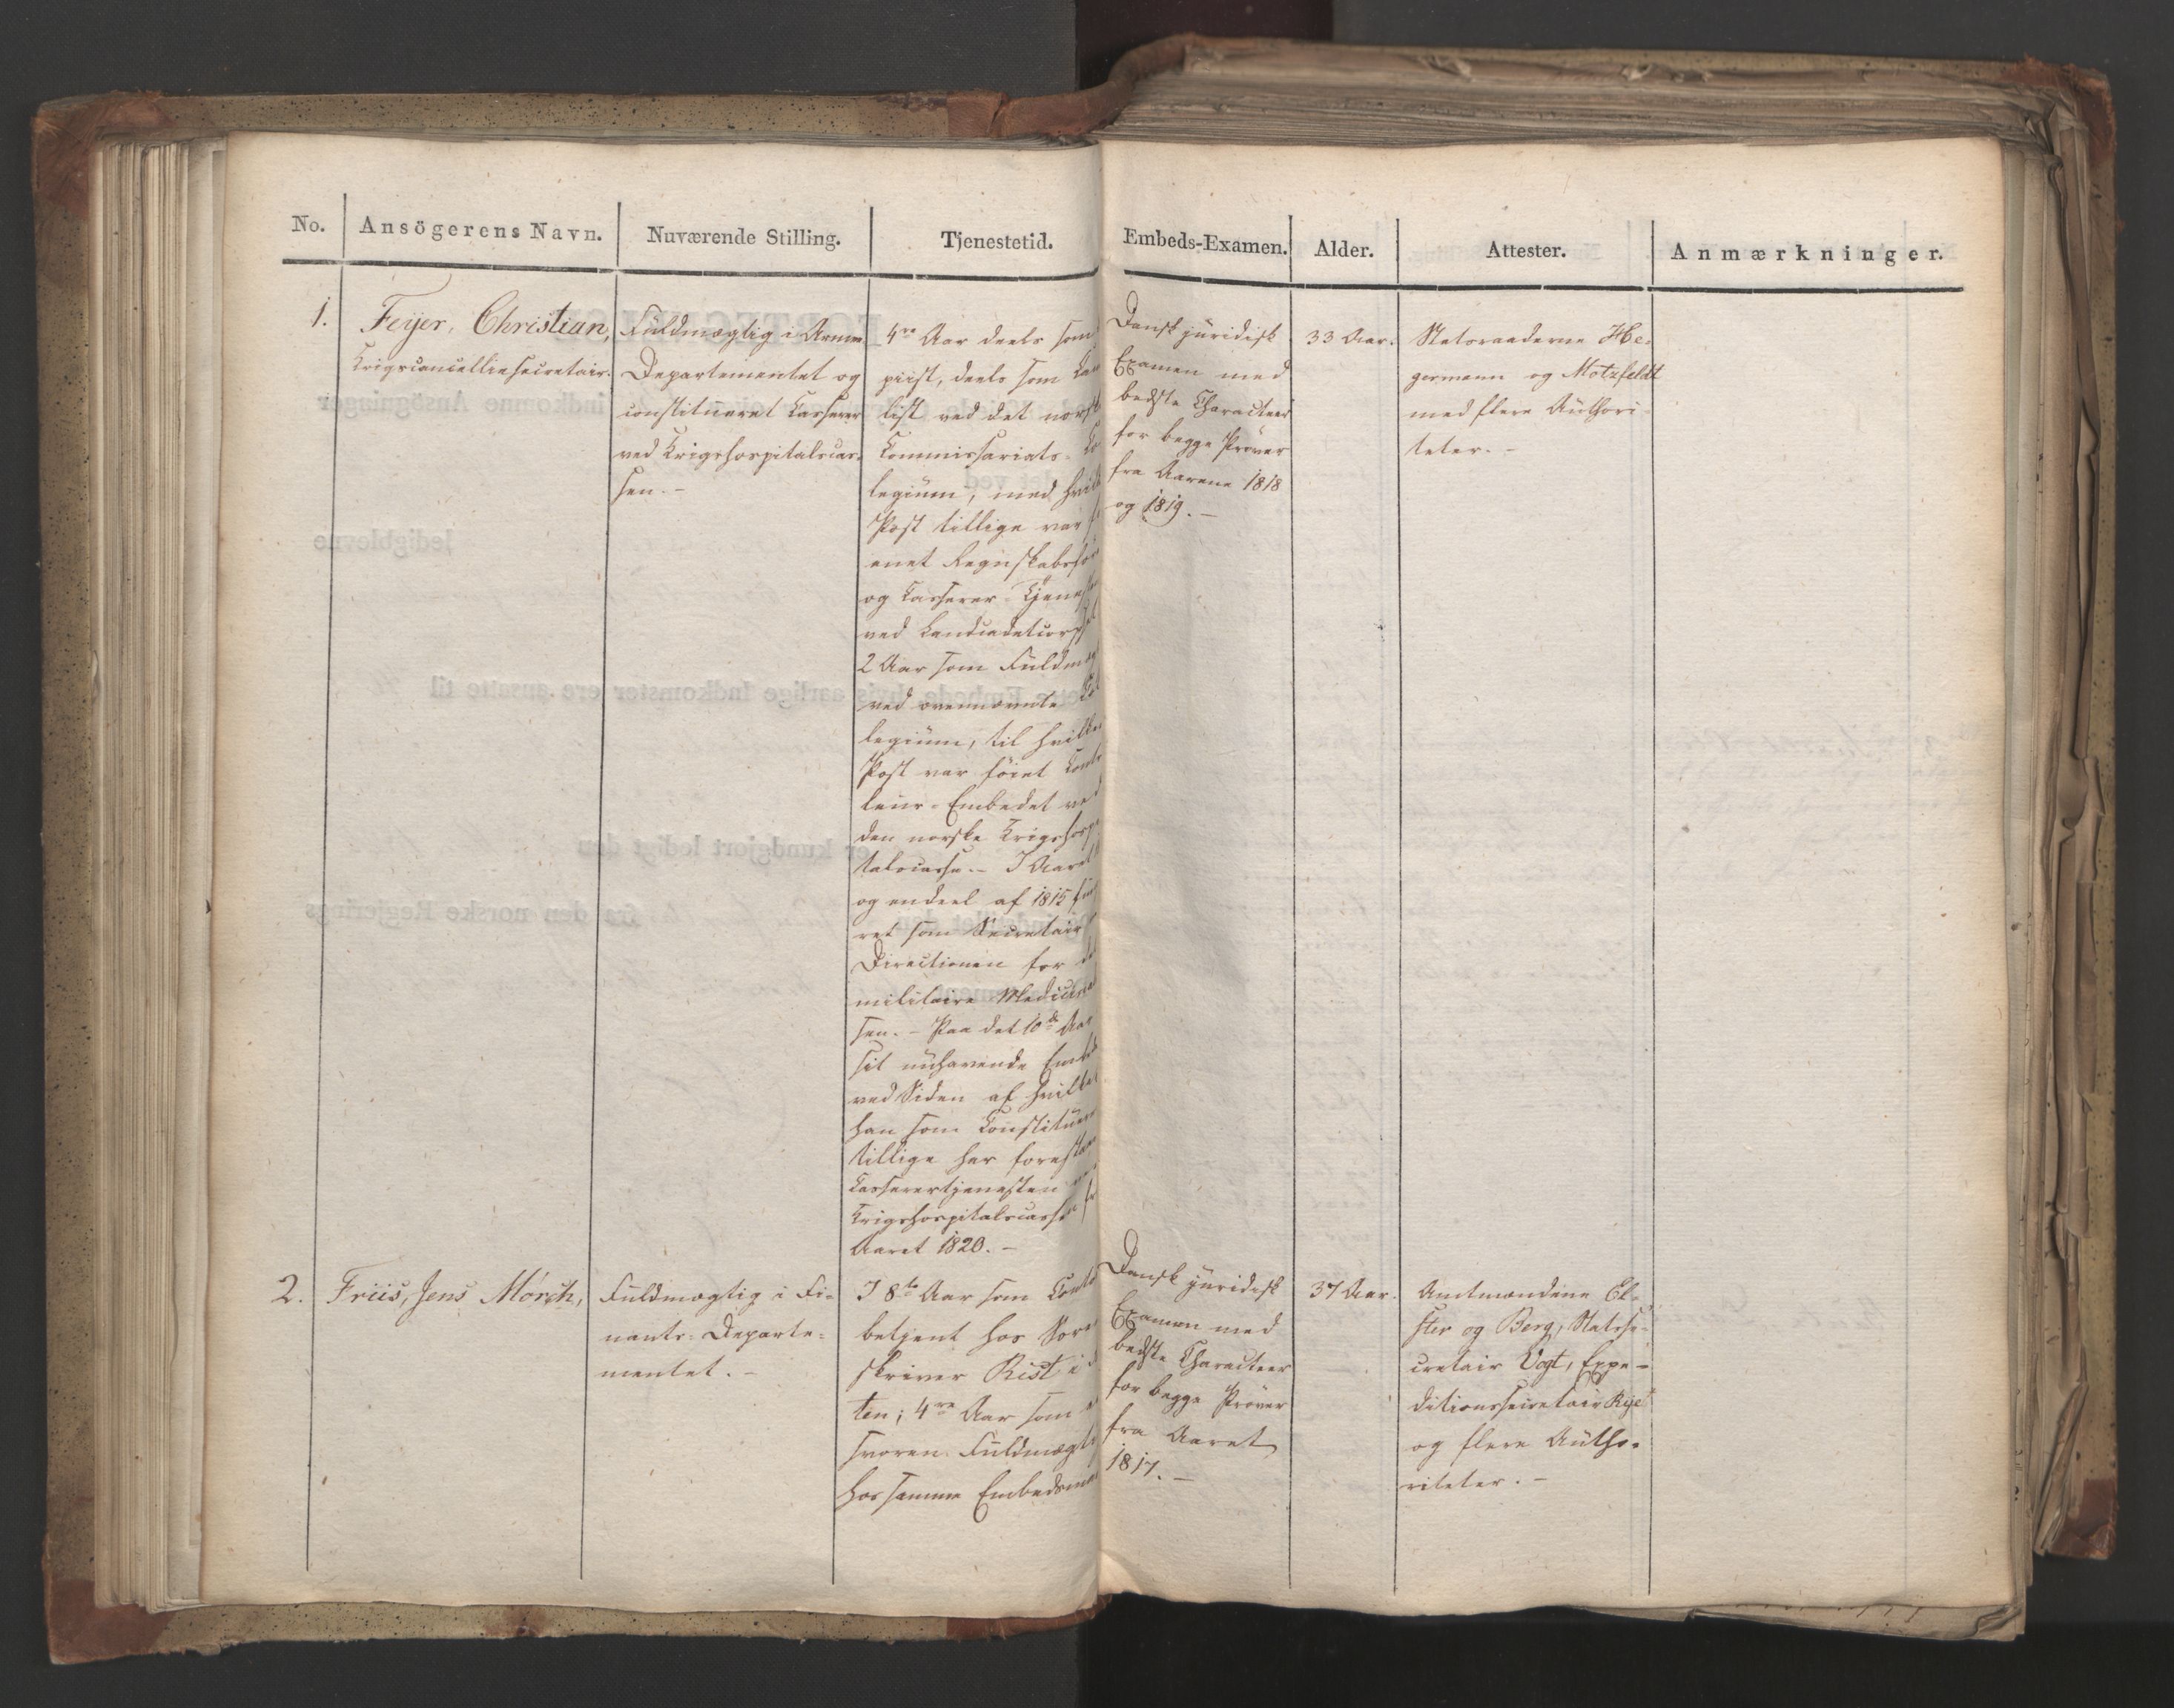 No.
Ansögerens Navn.
Nuværende Stilling.
Tjenestetid.
Embeds-Examen.
Alder.
Attester.
Anmærkninger.
1.
Feijer, Christian,
Krigscancelliesecretair.
Fuldmægtig i Armee
Departementet og
constitueret Casserer
ved Krigshospitalscas-
sen. -
4re Aar deels som
piist, deels som Can
list ved det norsk
Commissariats-Co
legium, med hvilk
Post tillige var
enet Regnskabsfør
og Casserer-Tjenest
ved Landcadetcorps
2 Aar som Fuldmæg
ved ovennævnte Col
legium, til hvilke
Post var föiet Contr
leur-Embedet ved
den norske Krigshospi
talscasse. - I Aaret
og endeel af 1815 fun
ret som Secretair
Directionen for det
militaire Medicinal
sen. - Paa det 10de Aar
sit nuhavende Embed
ved Siden af hvilket
han som Constituer
tillige har forestaa
Casserertjenesten
Krigshospitalscasse
Aaret 1820. -
Dansk juridisk
Examen med
bedste Characteer
for begge Pröver
fra Aarene 1818
og 1819. -
33 Aar.
Statsraaderne He-
germann og Motzfeldt
med flere Authori-
teter. -
2.
Friis, Jens Mörch,
Fuldmægtig i Fi-
nants-Departe-
mentet. -
I 8te Aar som Conto
betjent hos Sore
skriver Rist i
ten; 4re Aar som
svoren Fuldmægti
hos samme Embedsma
Dansk juridisk
Examen med
bedste Characteer
for begge Pröver
fra Aaret
1817. -
37 Aar.
Amtmændene El-
ster og Berg, Statsse-
cretair Vogt, Expe-
ditionssecretair Rye
og flere Autho-
riteter. -